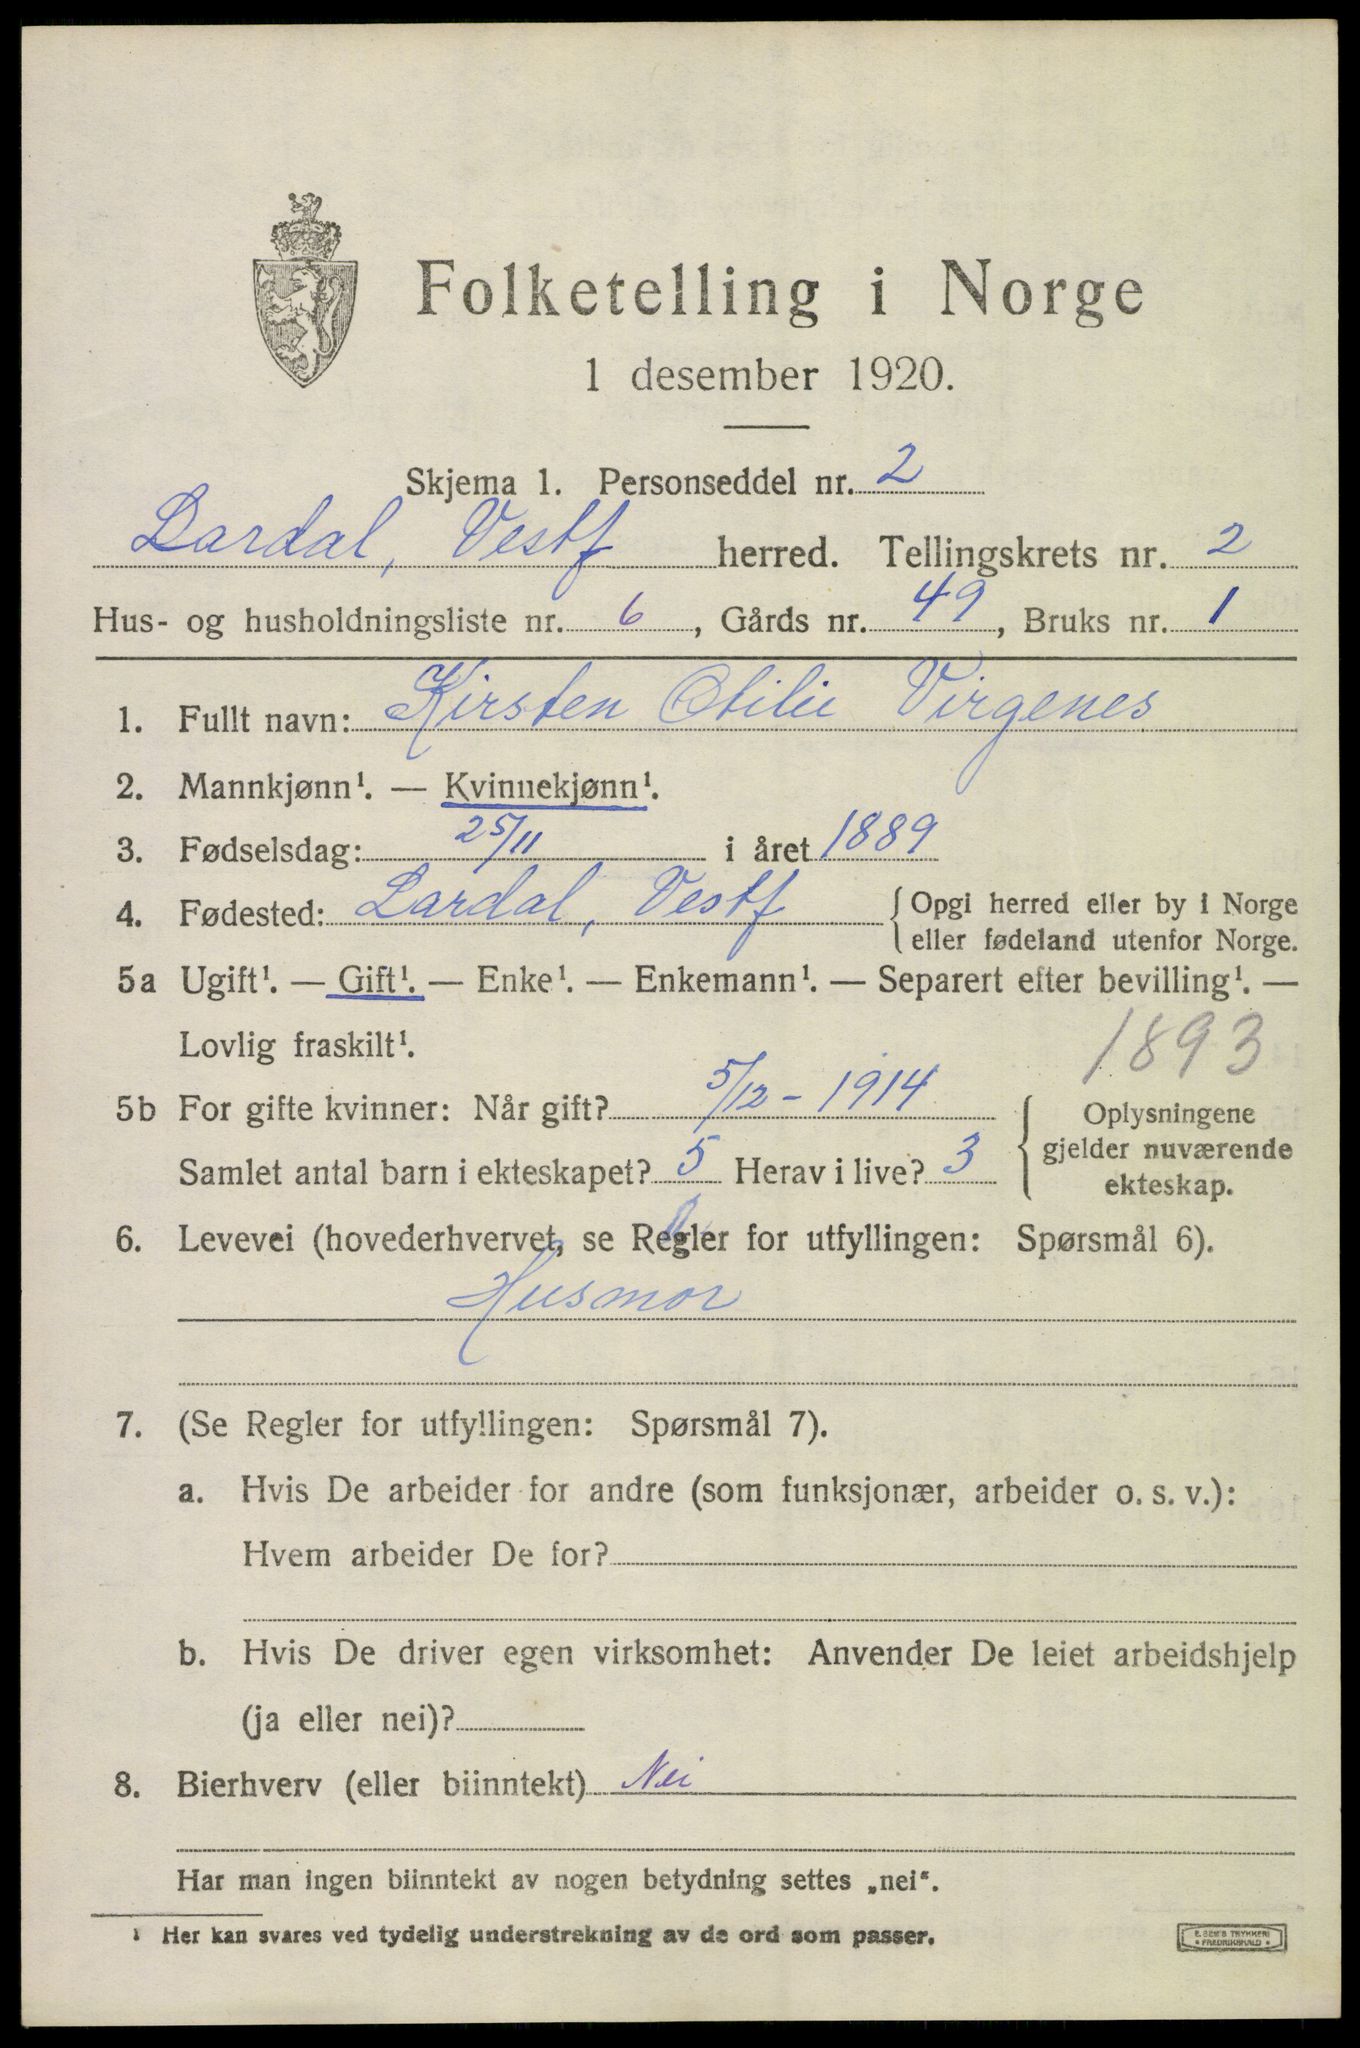 Folketelling i Norge
1 desember 1920.
Skjema 1. Personseddel nr. 2
Lardal, Vestf herred. Tellingskrets nr. 2
Hus- og husholdningsliste nr. 6, Gårds nr. 49, Bruks nr. 1
1. Fullt navn: Kirsten Otilie Virgenes
2. Mannkjønn¹. — Kvinnekjønn¹.
3. Fødselsdag: 25/11 i året 1889
4. Fødested: Lardal, Vestf { Opgi herred eller by i Norge
eller fødeland utenfor Norge.
5a Ugift¹. — Gift¹. — Enke¹. — Enkemann¹. — Separert efter bevilling¹. —
Lovlig fraskilt¹.
1893
5b For gifte kvinner: Når gift? 5/12 - 1914
Samlet antal barn i ekteskapet? 5 Herav i live? 3
{ Oplysningene
gjelder nuværende
ekteskap.
6. Levevei (hovederhvervet, se Regler for utfyllingen: Spørsmål 6).
Husmor
7. (Se Regler for utfyllingen: Spørsmål 7).
a. Hvis De arbeider for andre (som funksjonær, arbeider o. s. v.):
Hvem arbeider De for?
b. Hvis De driver egen virksomhet: Anvender De leiet arbeidshjelp
(ja eller nei)?
8. Bierhverv (eller biinntekt) Nei
Har man ingen biinntekt av nogen betydning settes „nei“.
¹ Her kan svares ved tydelig understrekning av de ord som passer.
E. SEM'S TRYKKERI
FREDRIKSHALD